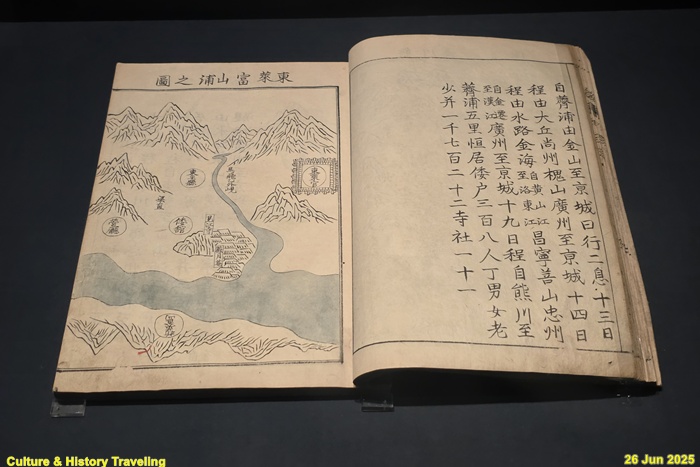 自薺浦由金山至京城日行二息十三日
程由大丘尙州槐山廣州至京城十四日
程由水路金海自黃山江至洛東江昌寧善山忠州
自金遷至漢江廣州至京城十九日程自熊川至
薺浦五里恒居倭戶三百八人丁男女老
少幷一千七百二十二寺社一十一
東萊富山浦之圖
東平縣
倭館
營廳
Culture & History Traveling
26 Jun 2025